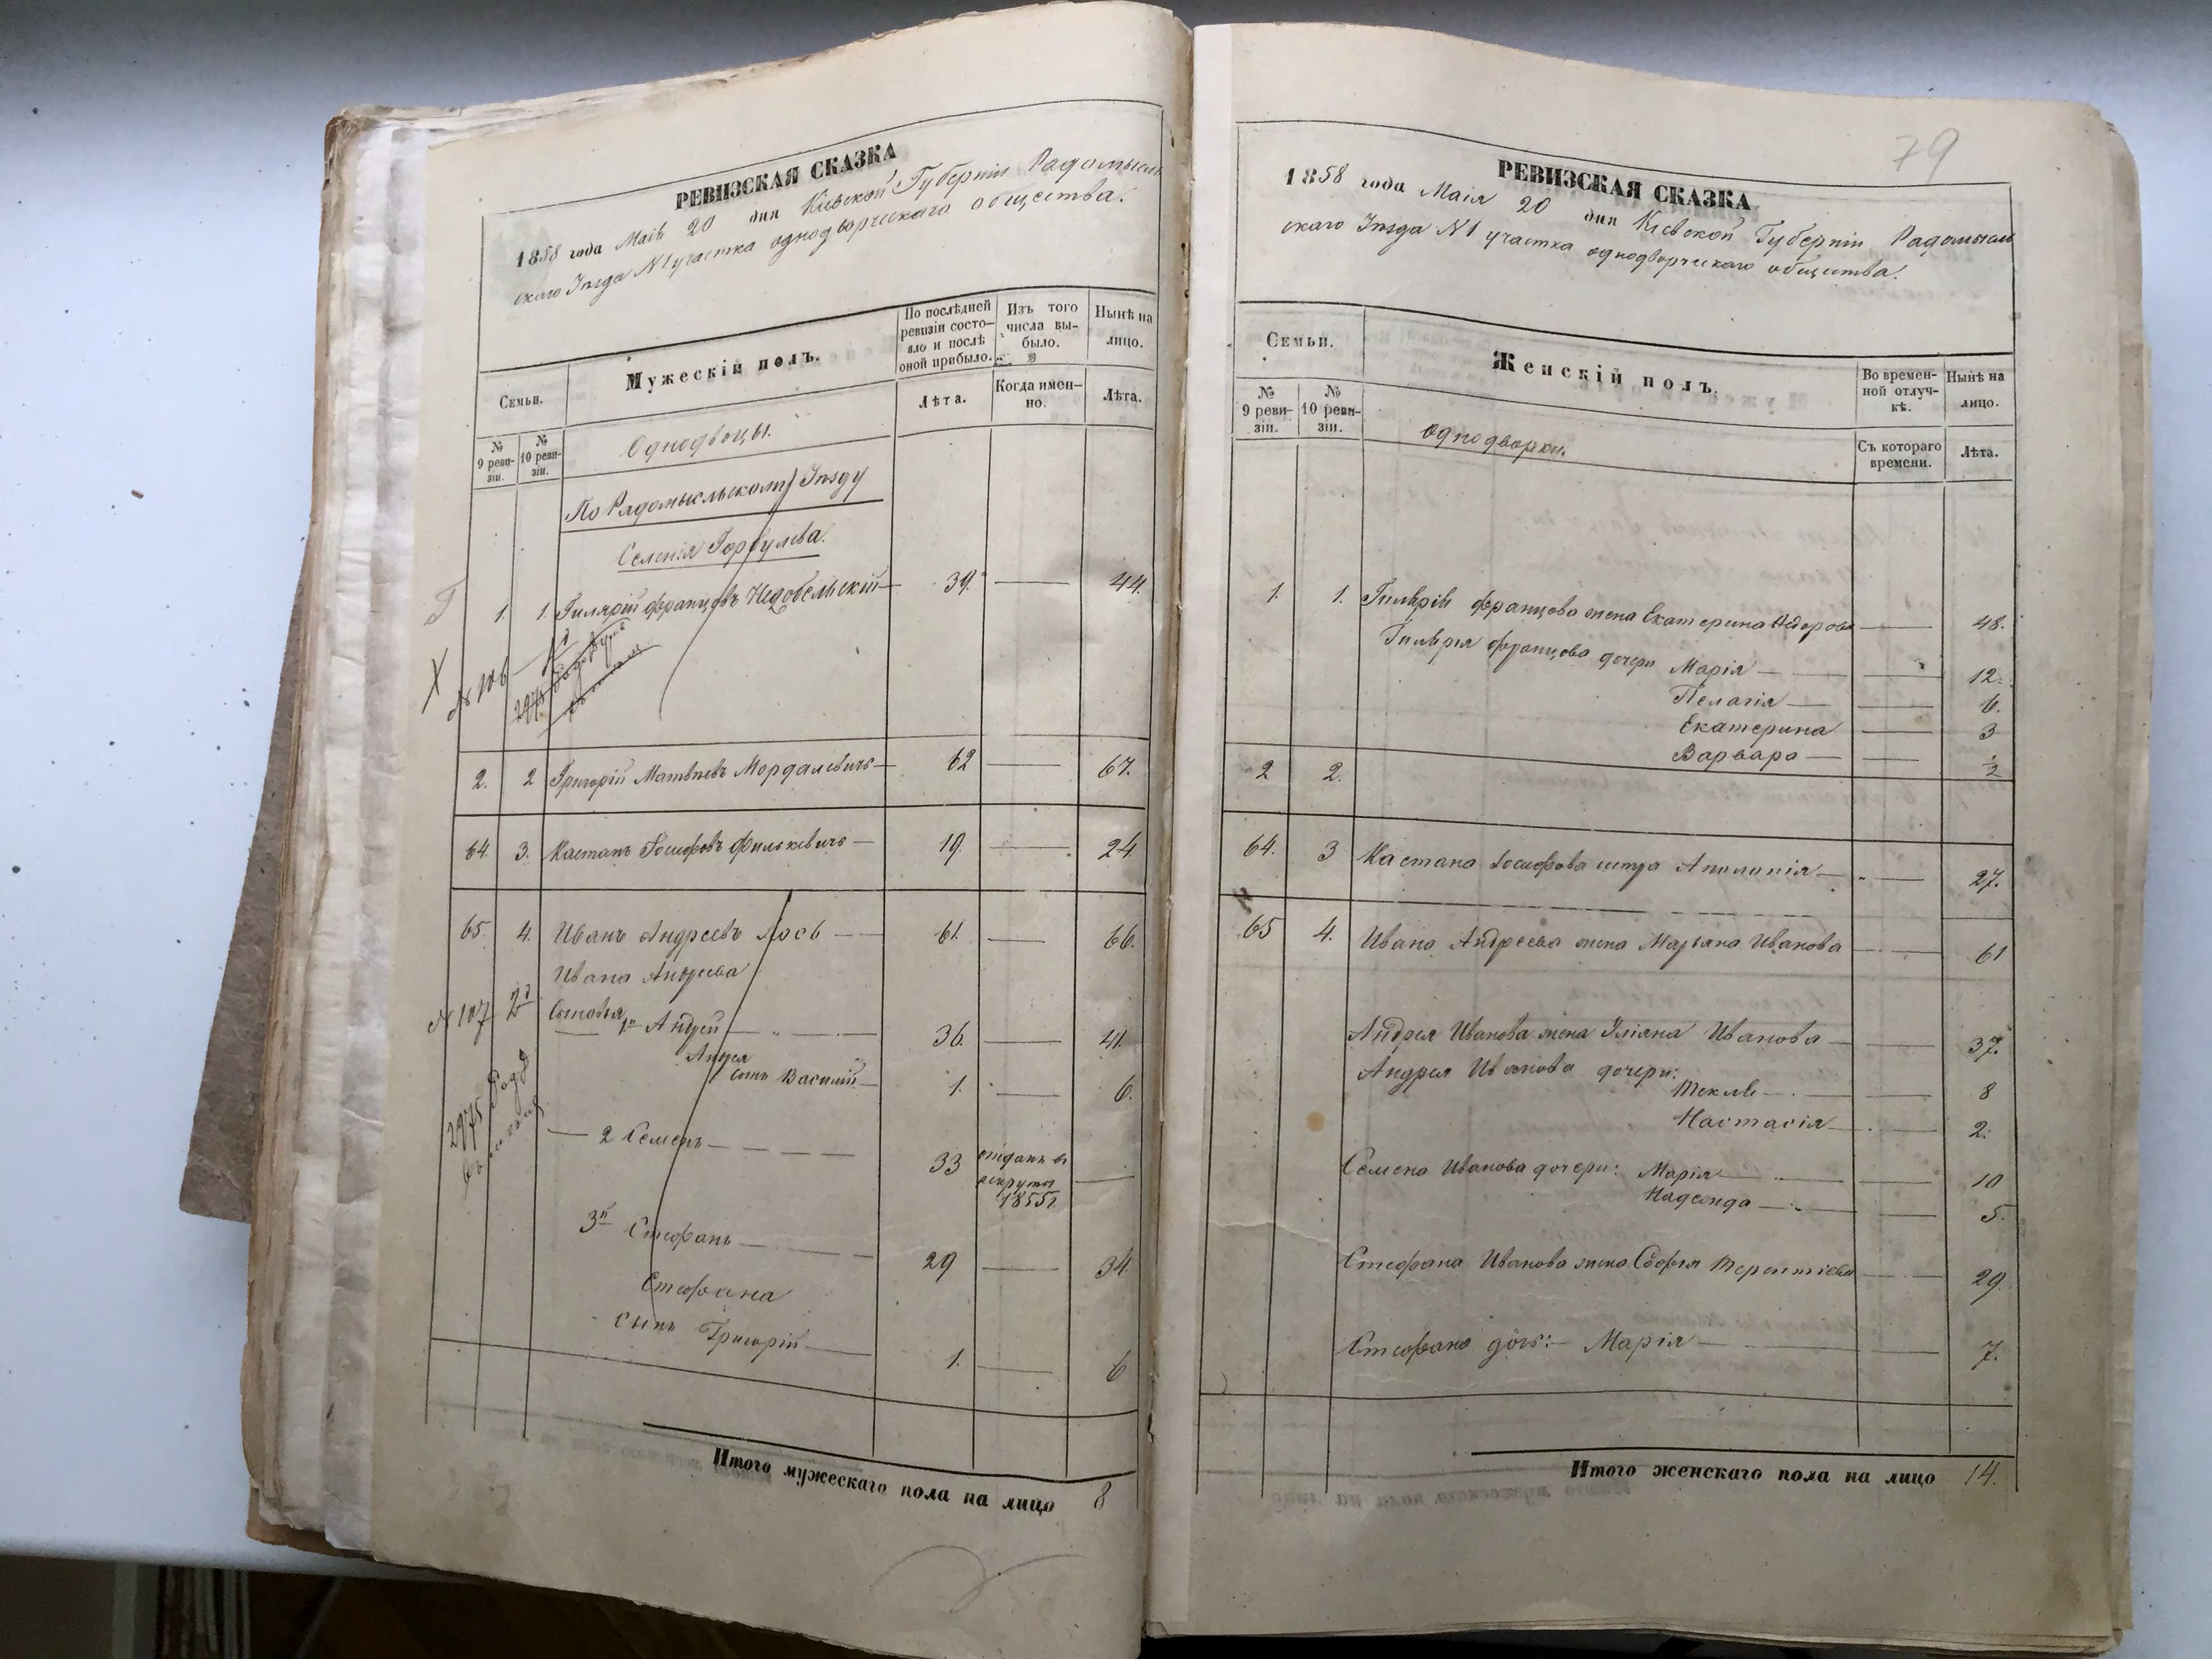 РЕВИЗСКАЯ СКАЗКА
1858 года Маія 20 дня Кіевской Губерніи Радомысль
скаго Уѣзда N1 участка однодворческаго общества.
Семьи.
№ 9 реви-зіи.
№ 10 реви-зіи.
Мужескій полъ.
По послѣдней ревизіи состо-яло и послѣ оной прибыло.
Изъ того числа вы-было.
Нынѣ на лицо.
Лѣта.
Когда имен-но.
Лѣта.
Однодворцы.
По Радомысльскому Уѣзду
Селенія Горбулева.
1. 1. Гилярій Францовъ Недобельскій 39. 44.
N 106
2975
2. 2 Григорій Матвѣевъ Мордалевичъ 62 67.
64 3. Каетанъ Іосифовъ Филькевичъ 19. 24.
65. 4. Иванъ Андреевъ Лось 61. 66.
Ивана Андреева
N 107
Сыновья 1й Андрей 36. 41.
Андрея
сынъ Василій 1. 6.
2975
2 Семенъ 33 отданъ въ
рекруты
1855г.
3й Стефанъ 29 34
Стефана
сынъ Григорій 1. 6
Итого мужескаго пола на лицо 8
79
РЕВИЗСКАЯ СКАЗКА
1858 года Маія 20 дня Кіевской Губерніи Радомысль
скаго Уѣзда N1 участка однодворческаго общества.
Семьи.
№ 9 реви-зіи.
№ 10 реви-зіи.
Женскій полъ.
Во времен-ной отлуч-кѣ.
Нынѣ на лицо.
Съ котораго времени.
Лѣта.
Однодворки.
1. 1. Гилярія Францова жена Екатерина 48.
Гилярія Францова дочери Марія 12.
Пелагія 6.
Екатерина 3
Варвара ½
2 2.
64. 3 Каетана Іосифова сестра Аполонія 27.
65 4. Ивана Андреева жена Марьяна Иванова 61
Андрея Иванова жена Уліана Иванова 37.
Андрея Иванова дочери:
Текля 8
Настасія 2.
Семена Иванова дочери: Марія 10
5.
Стефана Иванова жена Софія Терентіева 29.
Стефана дочь: Марія 7.
Итого женскаго пола на лицо 14.